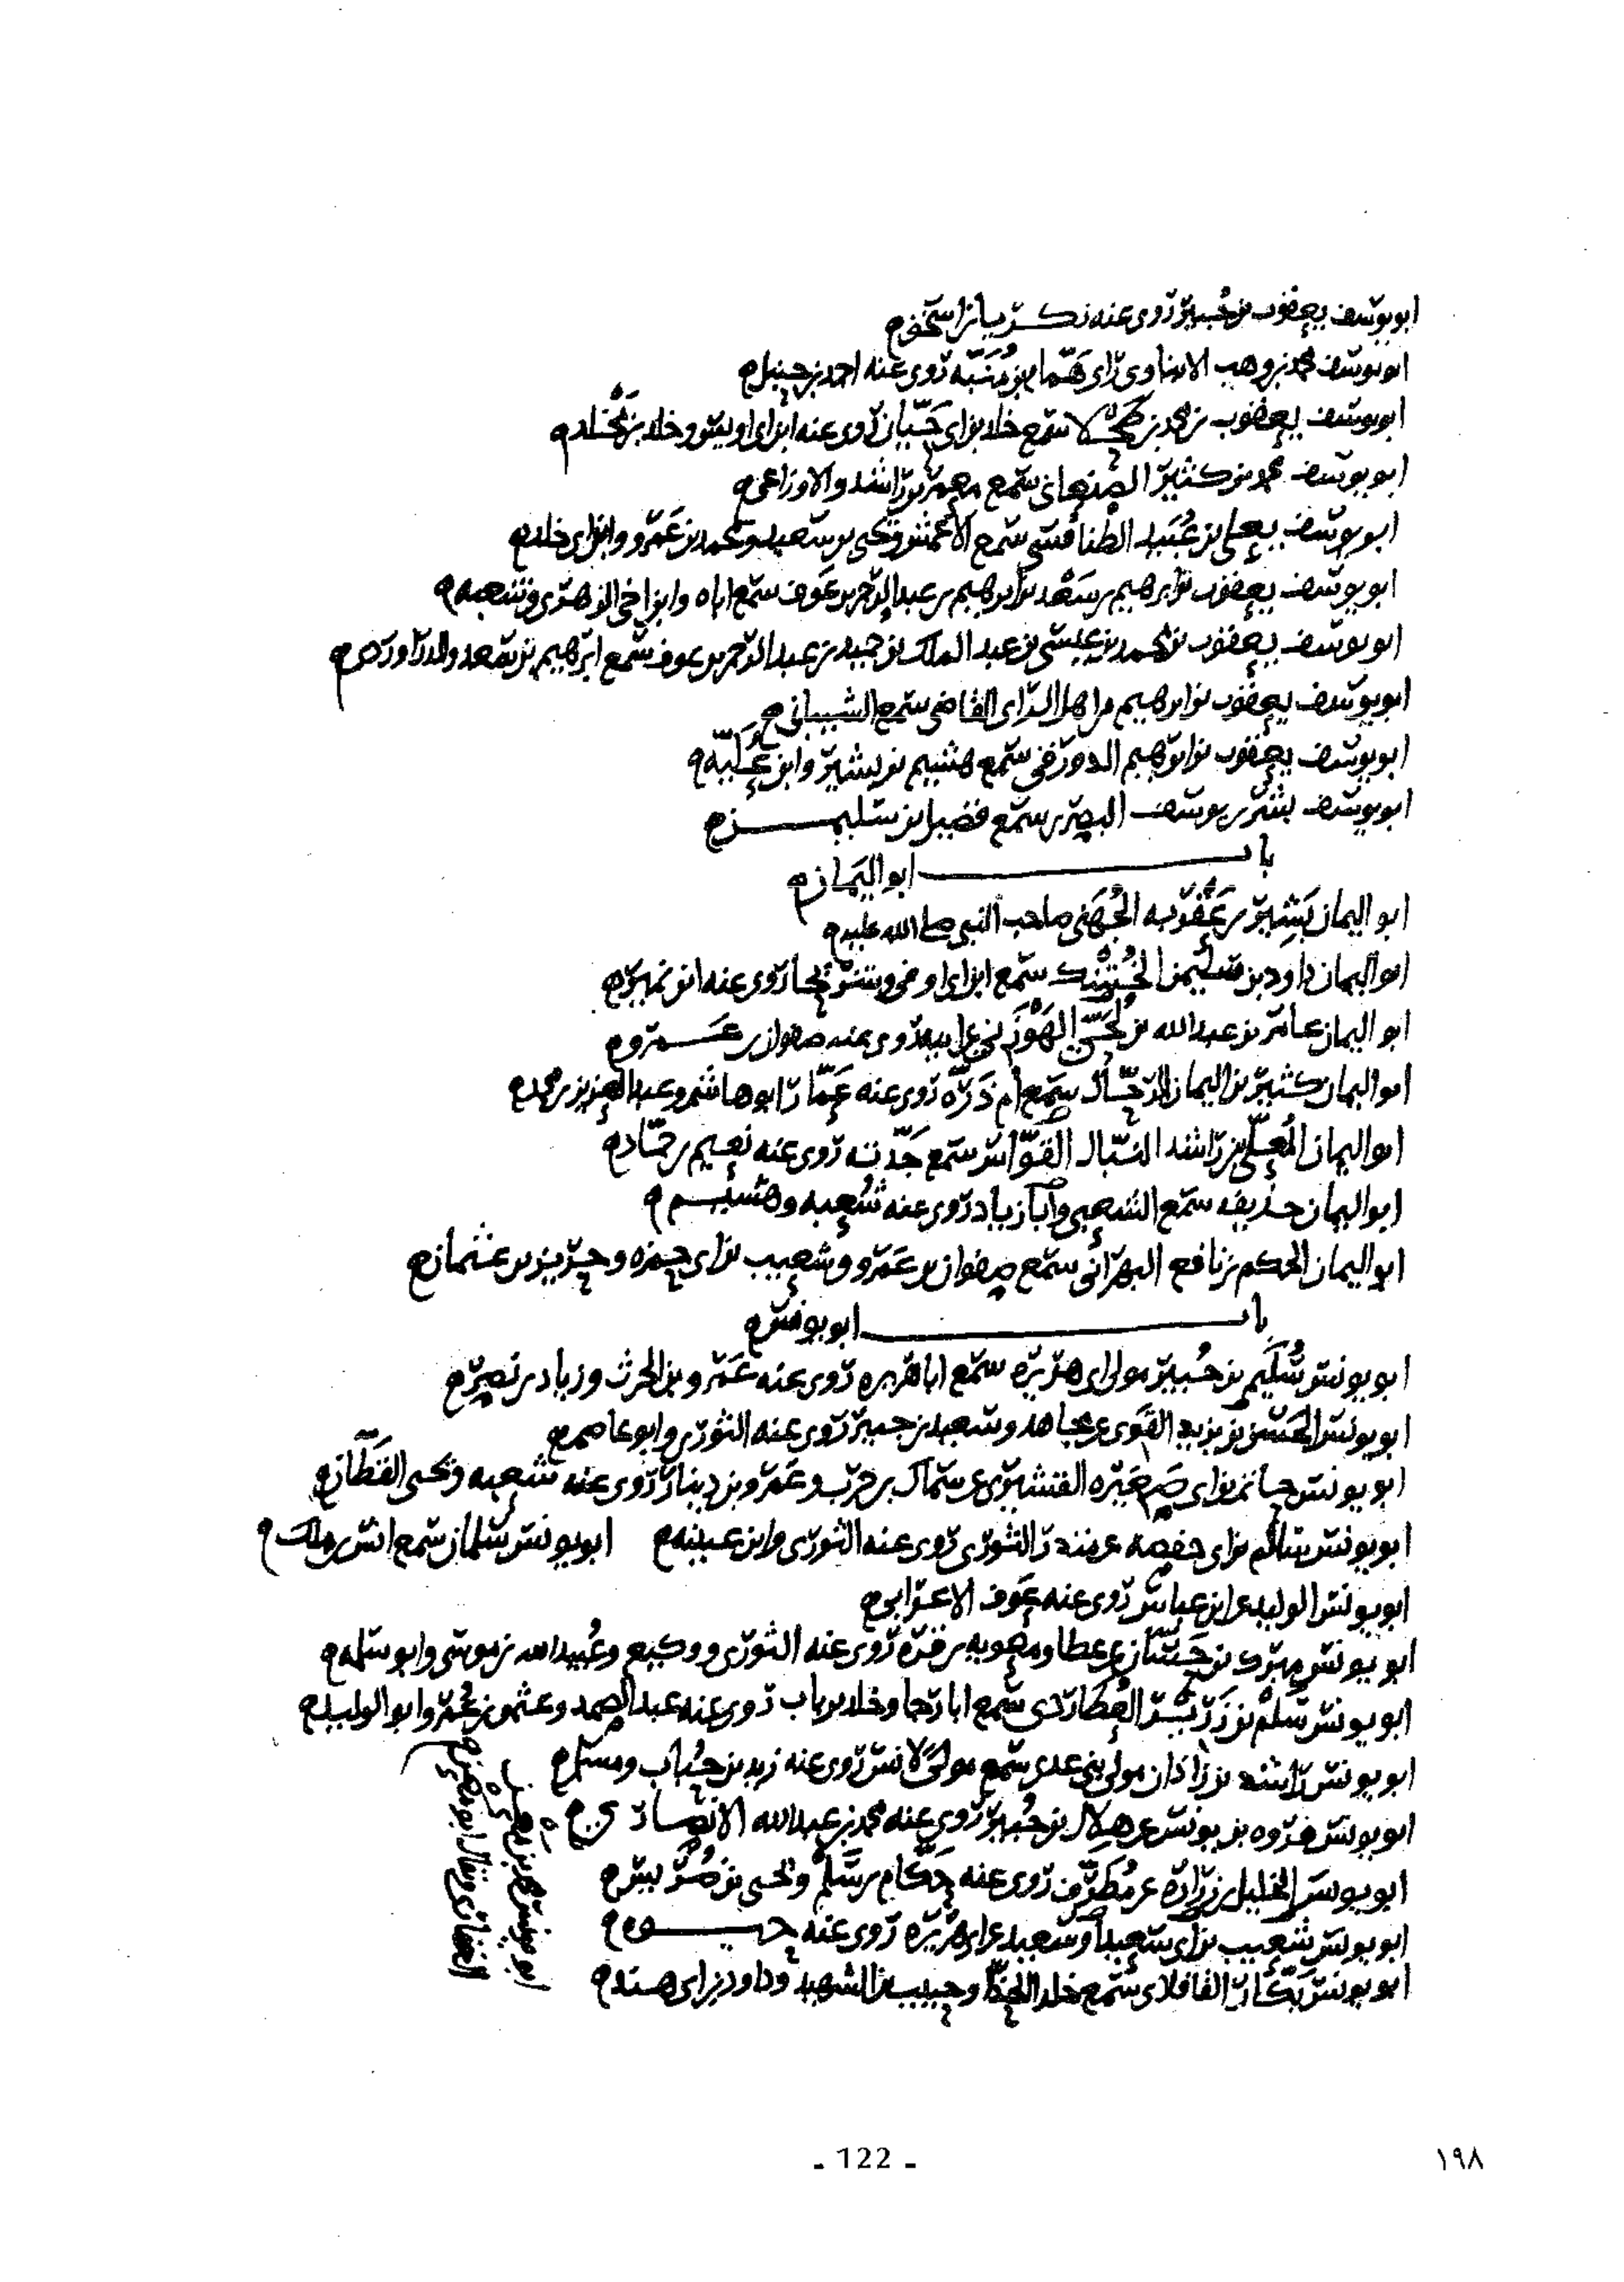 ابو يوسف يعقوب بن جبير روى عنه زكريا بن اسحق
ابو يوسف محمد بن وهب الابناوى راى همام بن منبه روى عنه احمد بن حنبل
ابو يوسف يعقوب بن محمد بن طحلا سمع خلد بن ابى حيان روى عنه ابن ابى اويس وخلد بن مخلد
ابو يوسف محمد بن كثير الصنعانى سمع معمر بن راشد والاوزاعى
ابو يوسف يعلى بن عبيد الطنافسى سمع الاعمش ويحيى بن سعيد ومحمد بن عمرو وابن ابى خلد
ابو يوسف يعقوب بن ابرهيم بن سعد بن ابرهيم بن عبد الرحمن بن عوف سمع اباه وابن اخى الزهرى وشعبه
ابو يوسف يعقوب بن محمد بن عيسى بن عبد الملك بن حميد بن عبد الرحمن بن عوف سمع ابرهيم بن سعد والدراوردى
ابو يوسف يعقوب بن ابرهيم من اهل الراى القاضى سمع الشيبانى
ابو يوسف يعقوب بن ابرهيم الدورقى سمع هشيم بن بشير وابن عليه
ابو يوسف بشر بن يوسف البصرى سمع فضيل بن سليمن
باب ابو اليمان
ابو اليمان بشير بن عقربه الجهنى صاحب النبى صلى الله عليه
ابو اليمان داود بن سليمن سمع ابن ابى اوفى روى عنه ابن نمير
ابو اليمان عامر بن عبد الله بن لحى الهوزنى عن ابيه روى عنه صفوان بن عمرو
ابو اليمان كثير بن اليمان الرحال سمع ام ذره روى عنه عمار ابو هاشم وعبد العزيز بن محمد
ابو اليمان المعلى بن راشد النبال القواس سمع جدته روى عنه نعيم بن حماد
ابو اليمان حذيفه سمع الشعبى وابا زياد روى عنه شعبه وهشيم
ابو اليمان الحكم بن نافع البهرانى سمع صفوان بن عمرو وشعيب بن ابى حمزه وحريز بن عثمان
باب ابو يونس
ابو يونس سليم بن جبير مولى ابى هريره سمع ابا هريره روى عنه عمرو بن الحرث وزياد بن نصير
ابو يونس الحسن بن يزيد القوى عن مجاهد وسعيد بن جبير روى عنه الثورى وابو عاصم
ابو يونس حاتم بن ابى صغيره القشيرى عن سماك بن حرب وعمرو بن دينار روى عنه شعبه ويحيى القطان
ابو يونس سالم بن ابى حفصه عن منذر الثورى روى عنه الثورى وابن عيينه ابو يونس سلمان سمع انس بن ملك
ابو يونس الوليد عن ابن عباس روى عنه عوف الاعرابى
ابو يونس بن حسان عن عطا ومعويه بن قره روى عنه الثورى ووكيع وعبيد الله بن موسى وابو سلمه
ابو يونس سلم بن زرير العطاردى سمع ابا رجا وخلد بن باب روى عنه عبد الصمد وعثمن بن عمر وابو الوليد
ابو يونس راشد بن زاذان مولى بنى عدى سمع مولى لانس روى عنه زيد بن حباب ومسلم
ابو يونس عروه بن يونس عن هلال بن جبير روى عنه محمد بن عبد الله الانصارى
ابو يونس الخليل بن زراره عن مطرف روى عنه حكام بن سلم ويحيى بن ضريس
ابو يونس شعيب بن ابى سعيد او سعيد عن ابى هريره روى عنه حيوه
ابو يونس بكار الفافلاى سمع خلد الحذا وحبيب بن الشهيد وداود بن ابى هند
ابو يونس محمد بن
الغفارى ويقال ابو نصر
- 122 -
١٩٨